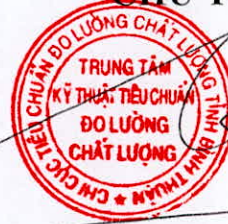 CHI CỤC TIÊU CHUẨN ĐO LƯỜNG CHẤT LƯỢNG TỈNH BÌNH THUẬN
TRUNG TÂM
KỸ THUẬT TIÊU CHUẨN
ĐO LƯỜNG
CHẤT LƯỢNG